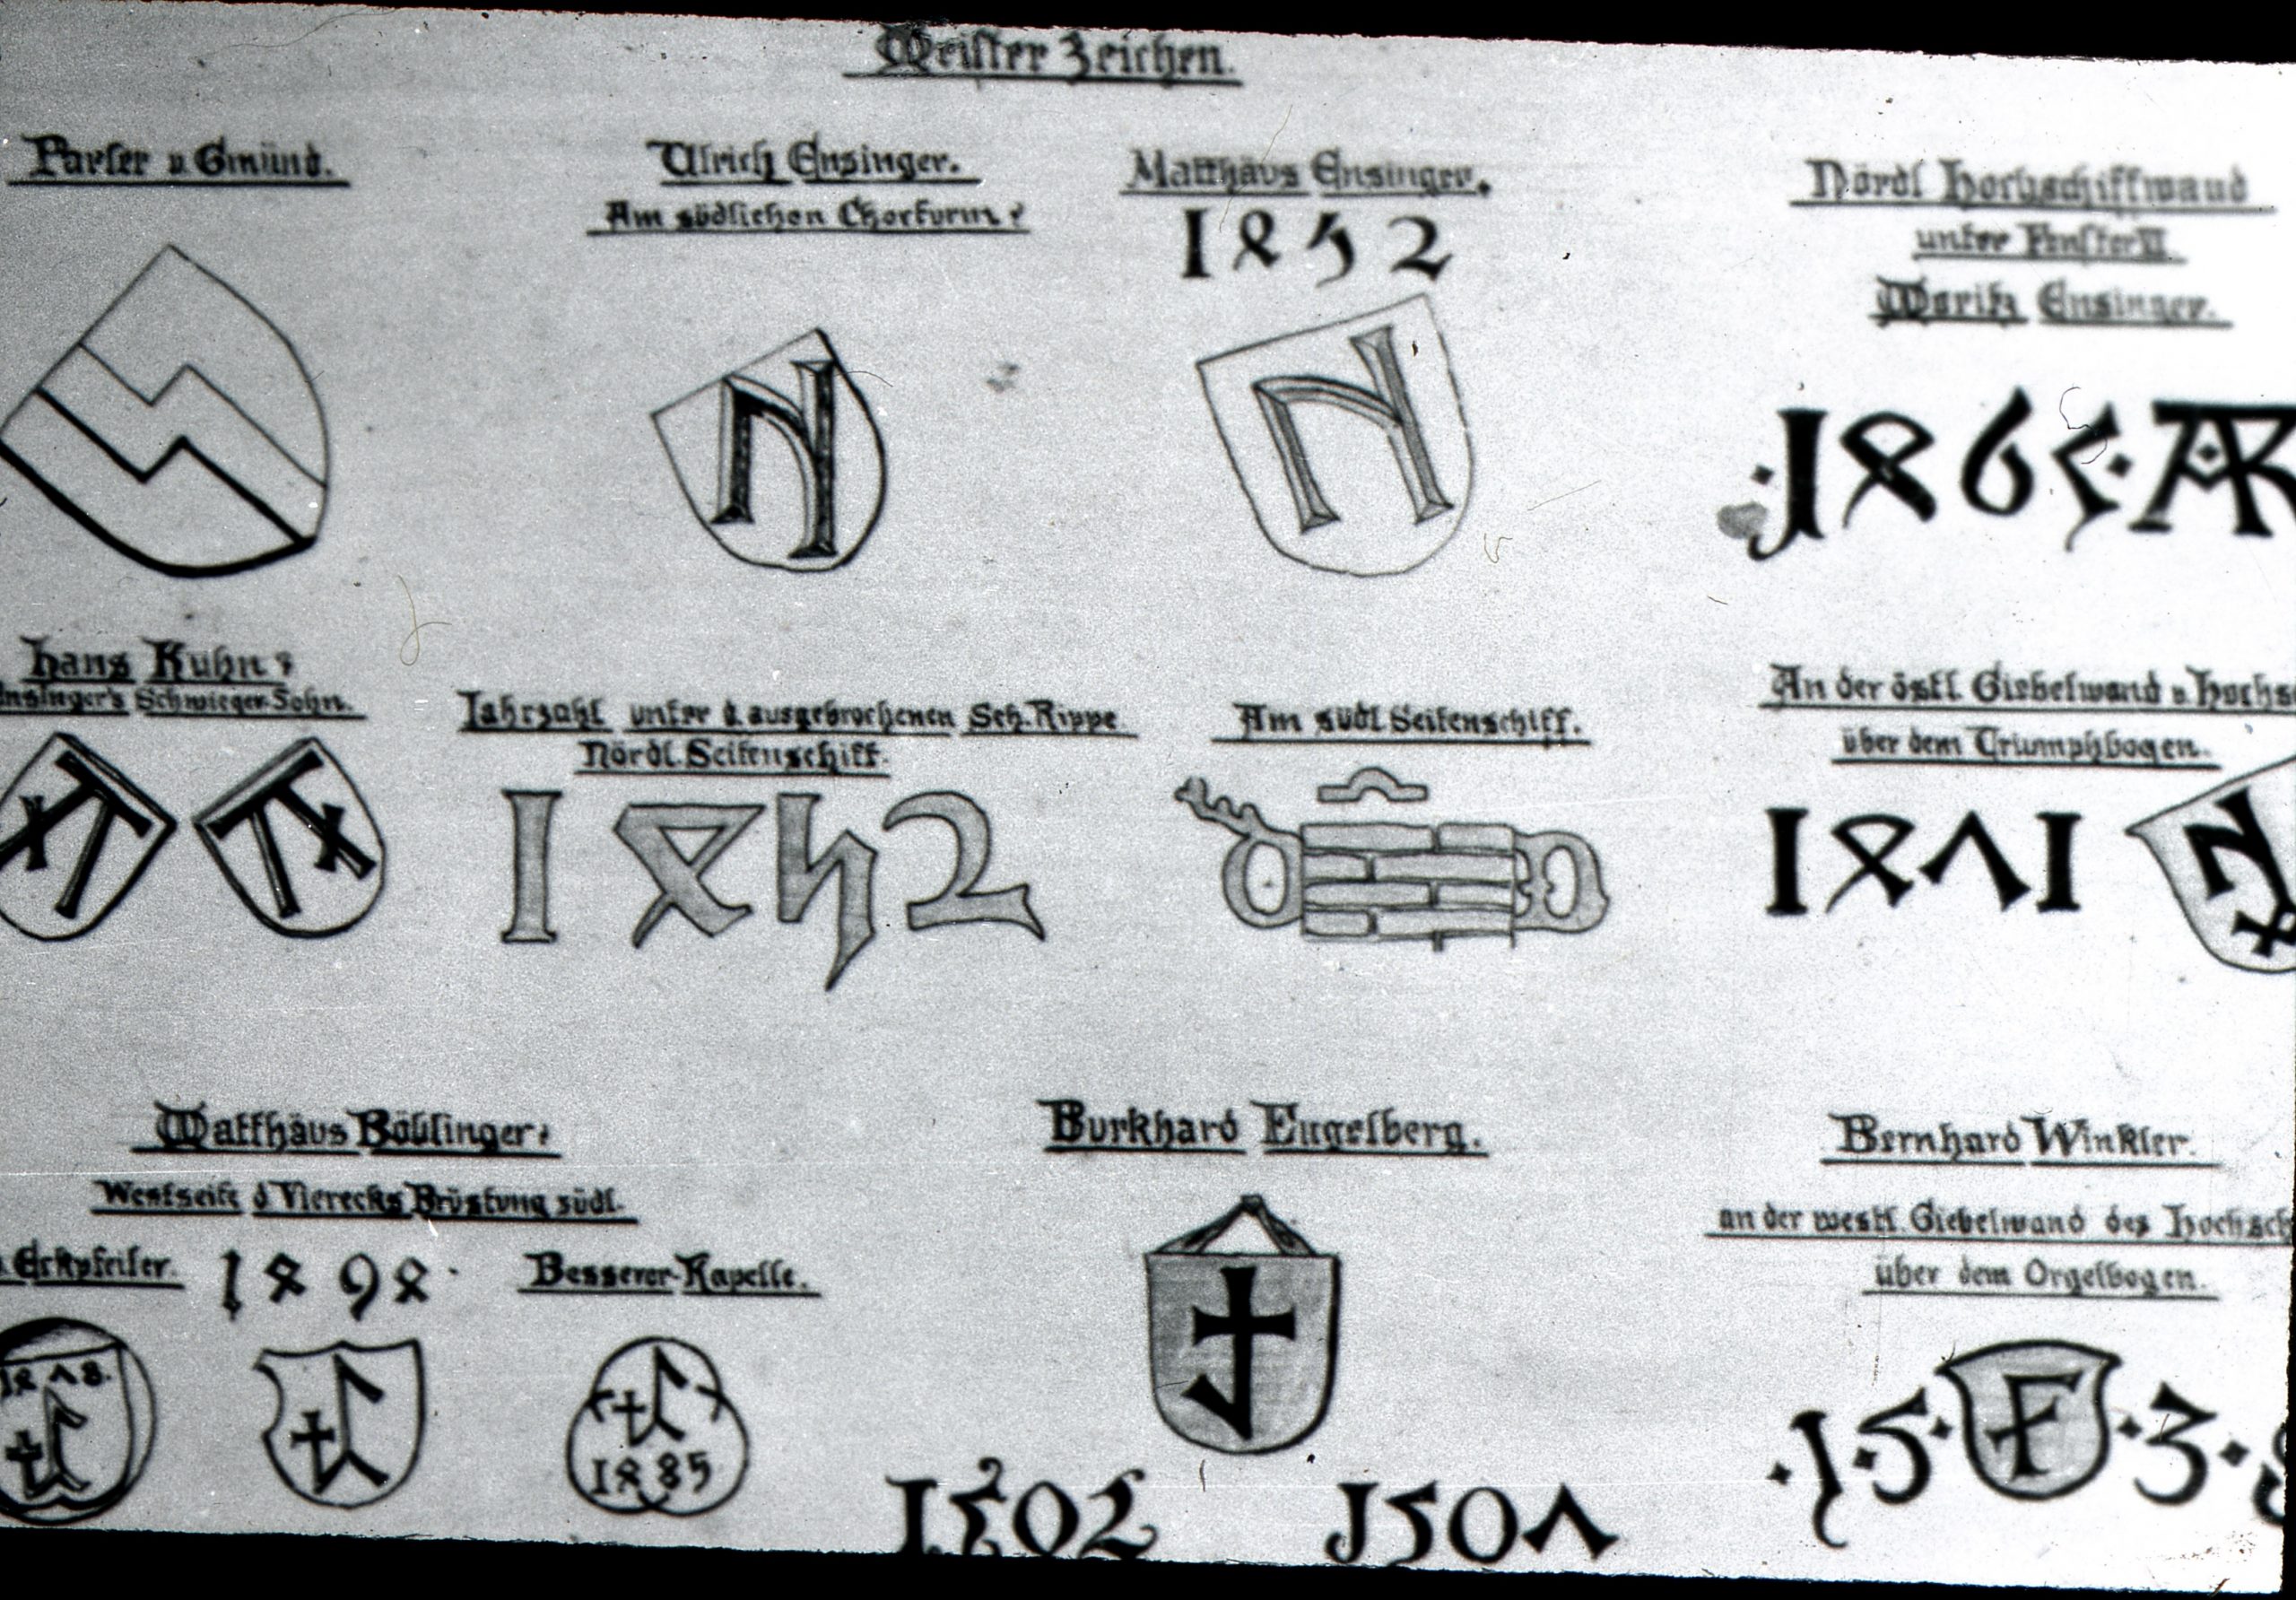 Meister Zeichen.
Parler v Gmünd.
Ulrich Ensinger.
Am südlichen Chorturm:
Matthäus Ensinger.
1452
Nördl Hochschiffwand
unter Fenster VI.
Moritz Ensinger.
1465
Hans Kuhn:
Ensinger's Schwieger-Sohn.
Jahrzahl unter d. ausgebrochenen Sch. Rippe
Nördl. Seitenschiff.
1452
Am südl. Seitenschiff.
An der östl. Giebelwand v. Hochs
über dem Triumphbogen.
1471
Matthäus Böblinger:
Westseite d Vierecks Brüstung südl.
Eckpfeiler.
1494
Besserer-Kapelle.
1478.
1485
Burkhard Engelberg.
1502
1507
Bernhard Winkler.
an der westl. Giebelwand des Hochsch
über dem Orgelbogen.
15 F 3